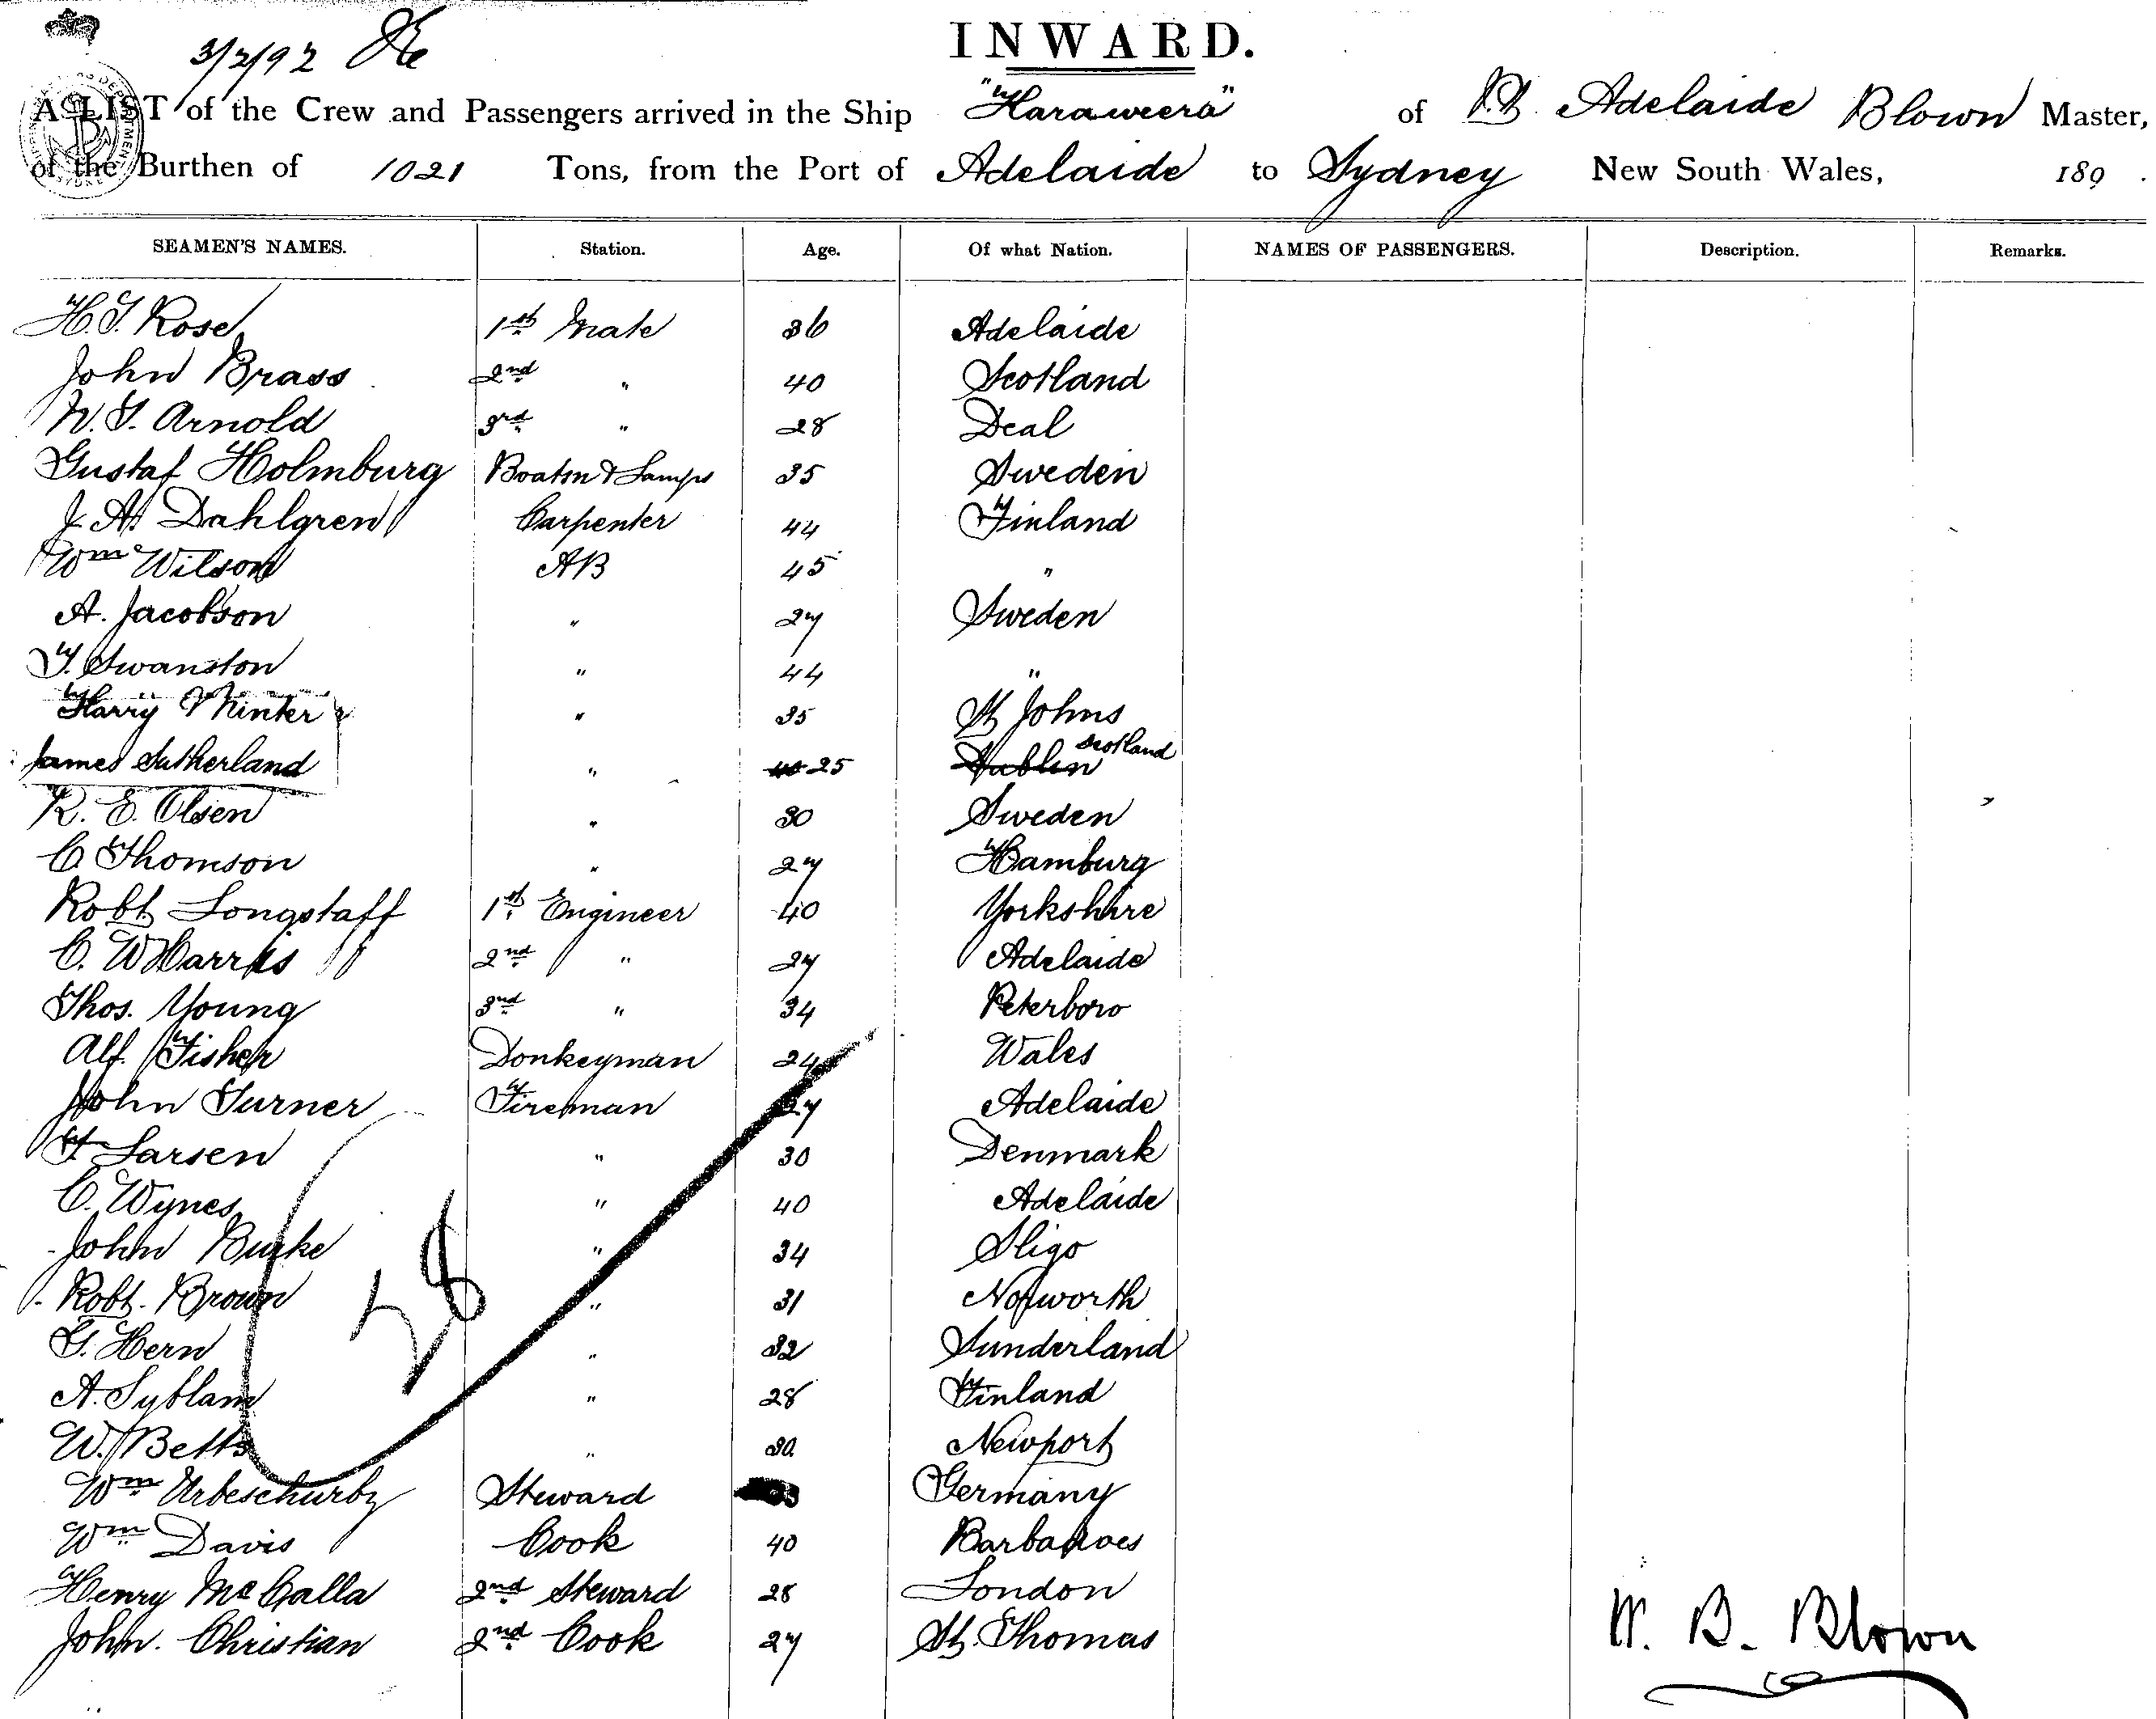 3/2/92
INWARD.
A LIST of the Crew and Passengers arrived in the Ship "Haraweera" of Pt. Adelaide Blown Master,
of the Burthen of 1021 Tons, from the Port of Adelaide to Sydney New South Wales, 189 .
SEAMEN'S NAMES. Station. Age. Of what Nation. NAMES OF PASSENGERS. Description. Remarks.
H. J. Rose 1st Mate 36 Adelaide
John Brass 2nd " 40 Scotland
W. J. Arnold 3rd " 28 Deal
Gustaf Holmburg Boatsn & Lamps 35 Sweden
J. A. Dahlgren Carpenter 44 Finland
Wm Wilson AB 45 "
A. Jacobson " 27 Sweden
F. Swanston " 44 "
Harry Minter " 35 St Johns
James Sutherland " 40 25 Dublin Scotland
R. E. Olsen " 30 Sweden
C. Thomson " 27 Hamburg
Robt. Longstaff 1st Engineer 40 Yorkshire
C. W Harris 2nd " 27 Adelaide
Thos. Young 3rd " 34 Peterboro
Alf. Fisher Donkeyman 24 Wales
John Turner Fireman 27 Adelaide
Larsen " 30 Denmark
C. Wynes " 40 Adelaide
John Burke " 34 Sligo
Robt. Brown " 31 Norworth
G. Hern " 32 Sunderland
A. Syblam " 28 Finland
W. Betts " 30 Newport
Wm Urbeschurby Steward Germany
Wm Davis Cook 40 Barbadoes
Henry McCalla 2nd Steward 28 London
John. Christian 2nd Cook 27 St. Thomas
28
W. B. Blown